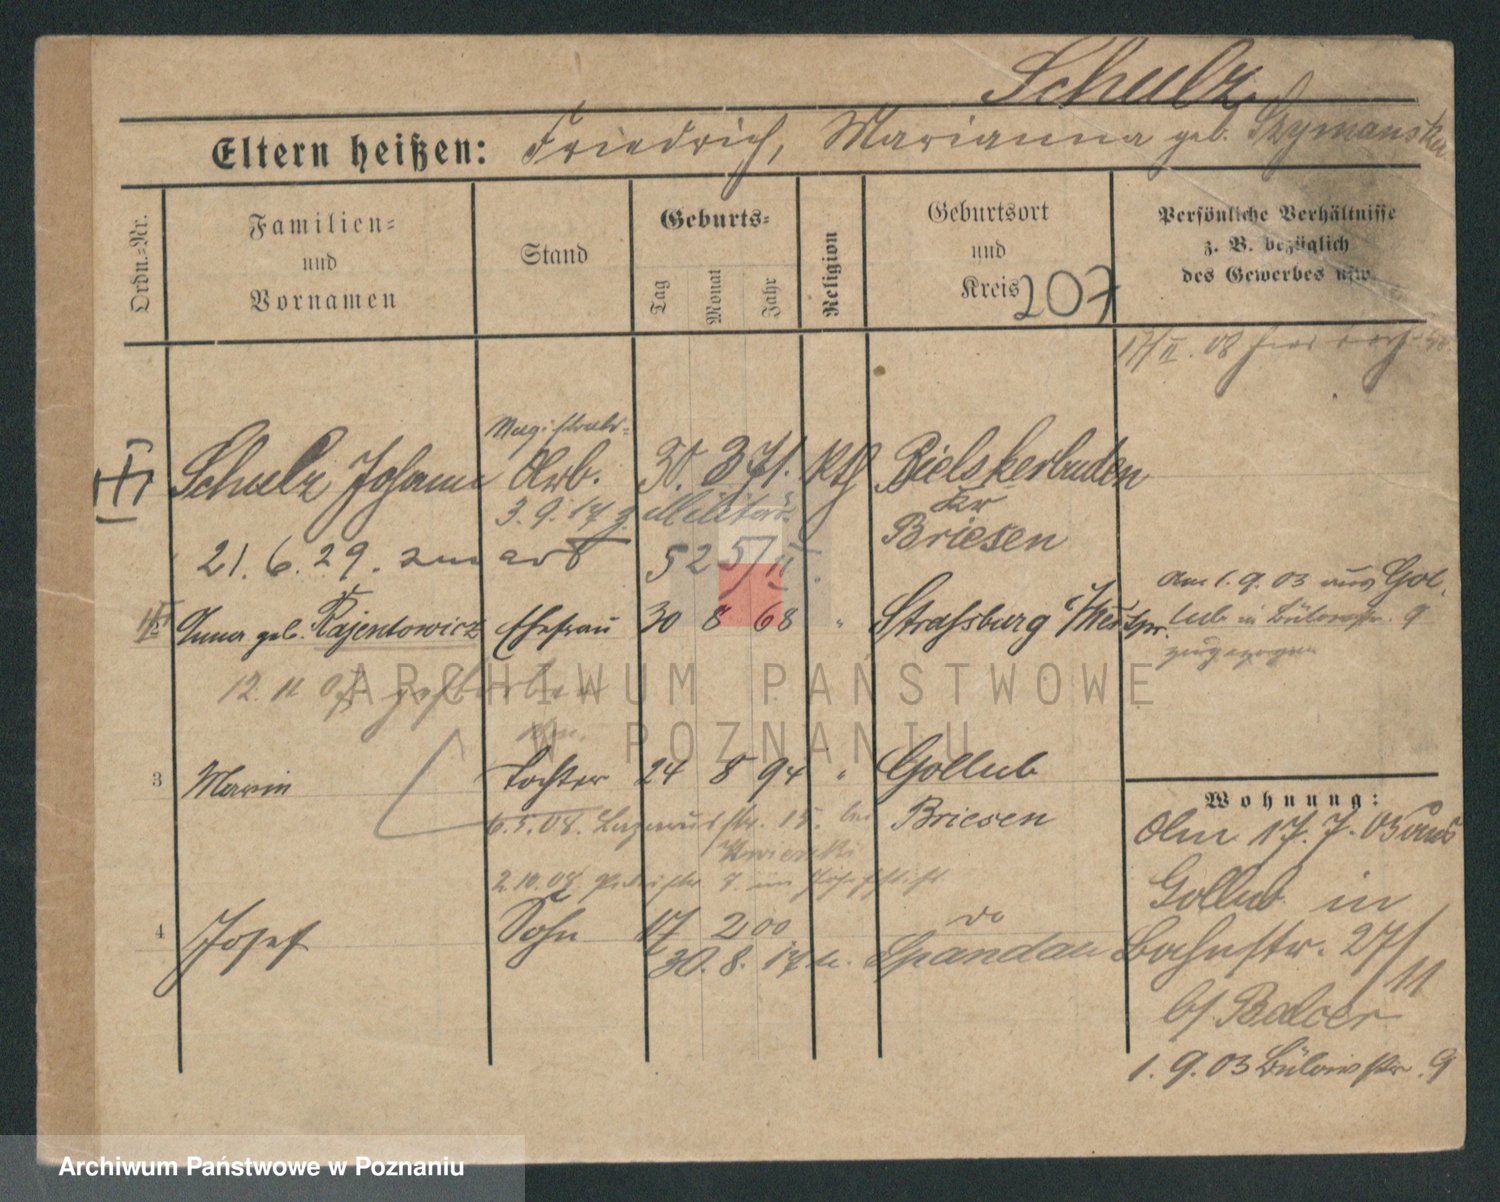 Schulz
Eltern heißen: Friedrich, Marianna geb. Szymanska
Ordn.-Nr.
Familien-
und
Vornamen
Stand
Geburts-
Tag
Monat
Jahr
Religion
Geburtsort
und
Kreis
207
Persönliche Verhältnisse
z. B. bezüglich
des Gewerbes usw.
17/II. 08
Magistrats-
Schulz Johann Arb. 30. 3 71. kth Bielskerbuden
3. 9. 17 z. Militär. Kr
Briesen
21. 6. 29.
52 5/II.
Anna geb. Rajentowicz Ehefrau 30 8 68 " Strassburg i/Westpr.
am 1. 9. 03 aus Gol-
lub in Bülowstr. 9
zugezogen
12. 11 07 gestorben
3 Marie Tochter 24 8 94 " Gollub
Briesen
6. 5. 08. Lazarusstr. 15. bei
2. 10. 08
4 Josef Sohn 17 2 00 do
30. 8. 17 n. Spandau
Wohnung:
Am 17. 7. 03 aus
Gollub in
Bahnstr. 27/
11
b/ Balcer
1. 9. 03 Bülowstr. 9
ARCHIWUM PAŃSTWOWE
W POZNANIU
Archiwum Państwowe w Poznaniu